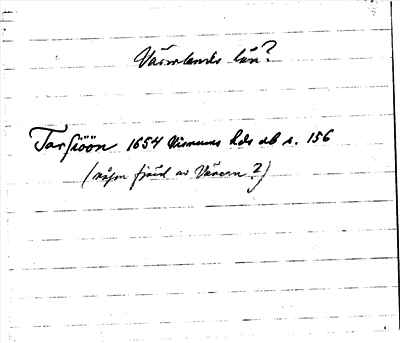 Värmlands län?
Tarsiöön 1654 Visnums hds db s. 156
(någon fjärd av Vänern?)